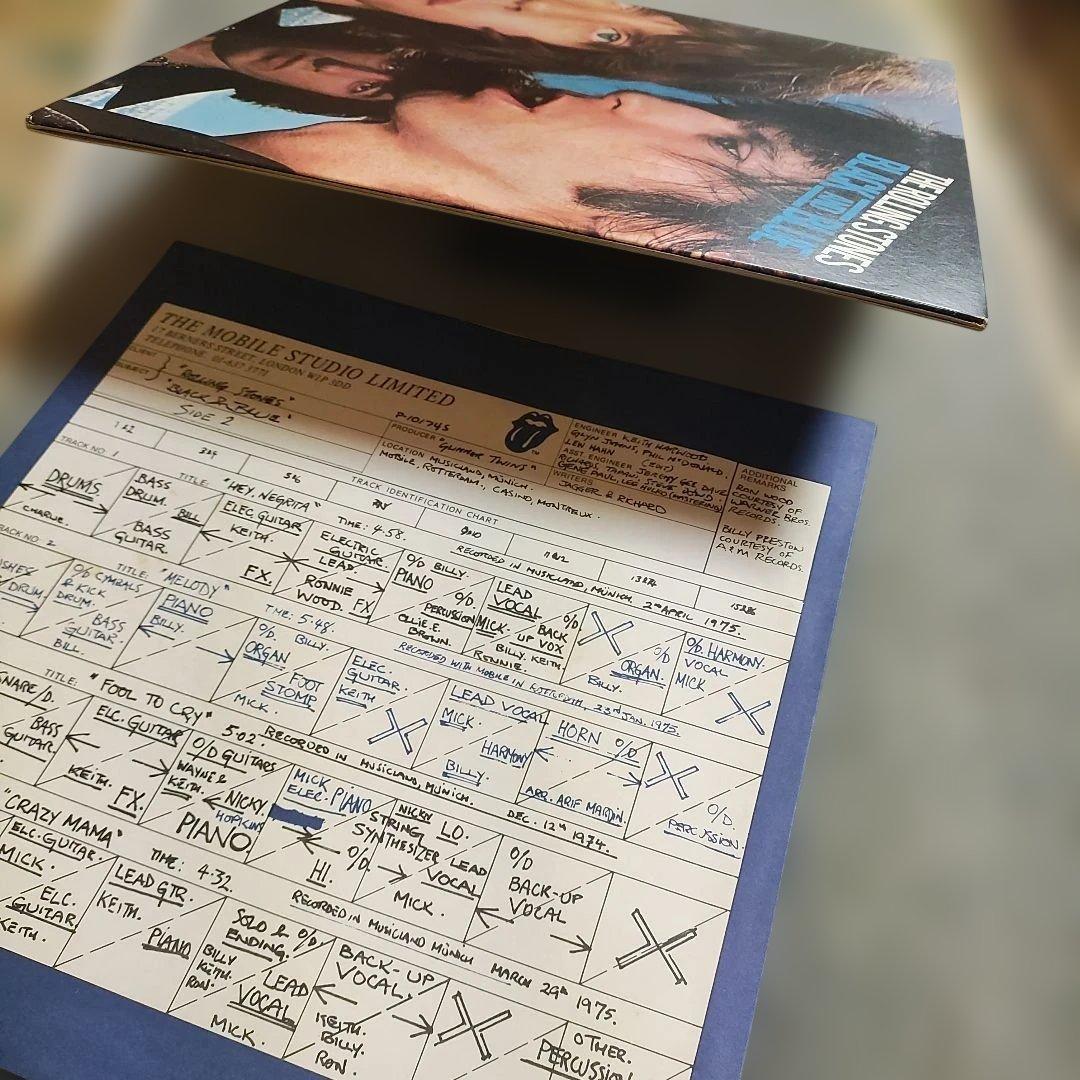 THE ROLLING STONES
BLACK AND BLUE
THE MOBILE STUDIO LIMITED
17 BERNERS STREET, LONDON W1P 3DD
TELEPHONE: 01-637-3771
CLIENT
"ROLLING STONES"
SUBJECT
"BLACK & BLUE"
SIDE 2
P-101745
PRODUCER "GLIMMER TWINS"
LOCATION MUSICLAND, MUNICH.
MOBILE, ROTTERDAM., CASINO, MONTREUX.
ENGINEER KEITH HARWOOD
GLYN JOHNS, PHIL McDONALD,
LEW HAHN
ASST ENGINEER JEREMY GEE DAVE
GENE PAUL, LEE
WRITERS
JAGGER & RICHARD
ADDITIONAL
REMARKS
RON WOOD
COURTESY OF
WARNER BROS.
RECORDS.
BILLY PRESTON
COURTESY OF
A&M RECORDS.
TRACK IDENTIFICATION CHART
1&2
3&4
TRACK NO. 1
TITLE: "HEY, NEGRITA"
TIME: 4-58.
RECORDED IN MUSICLAND, MUNICH. 2nd APRIL 1975.
DRUMS
CHARLIE.
BASS
DRUM.
BILL
BASS
GUITAR.
ELEC GUITAR
KEITH.
FX.
ELECTRIC
GUITAR.
LEAD
RONNIE
WOOD. FX
O/D BILLY.
PIANO
O/D.
PERCUSSION
OLLIE.E.
BROWN.
LEAD
VOCAL
MICK.
O/D
BACK
UP VOX
BILLY. KEITH.
RONNIE.
O/D
ORGAN.
BILLY.
O/D. HARMONY.
VOCAL
MICK
TRACK NO. 2
TITLE: "MELODY"
TIME: 5-48.
RECORDED WITH MOBILE IN ROTTERDAM, 23rd JAN. 1975.
DRUM.
O/D CYMBALS
& KICK
DRUM.
BASS
GUITAR.
BILL.
PIANO
BILLY.
O/D. BILLY.
ORGAN
FOOT
STOMP
MICK.
ELEC.
GUITAR.
KEITH
LEAD VOCAL
MICK.
HARMONY
BILLY.
HORN O/D
ARR. ARIF MARDIN.
O/D.
PERCUSSION
TITLE: "FOOL TO CRY" 5-02. RECORDED IN MUSICLAND, MUNICH. DEC. 12th 1974.
SNARE/D.
BASS
GUITAR.
ELC. GUITAR
KEITH. FX.
O/D GUITARS
WAYNE &
KEITH.
NICKY
HOPKINS
PIANO
MICK
ELEC. PIANO
O/D.
HI.
NICKY LO.
STRING
SYNTHESIZER
LEAD
VOCAL
MICK.
O/D
BACK-UP
VOCAL
"CRAZY MAMA" TIME: 4-32. RECORDED IN MUSICLAND MUNICH MARCH 29th 1975.
ELC. GUITAR.
MICK.
ELC.
GUITAR
KEITH.
LEAD GTR.
KEITH.
PIANO
SOLO & O/D.
ENDING.
BILLY
KEITH.
RON.
LEAD
VOCAL
MICK.
BACK-UP
VOCAL.
KEITH.
BILLY.
RON.
OTHER.
PERCUSSION